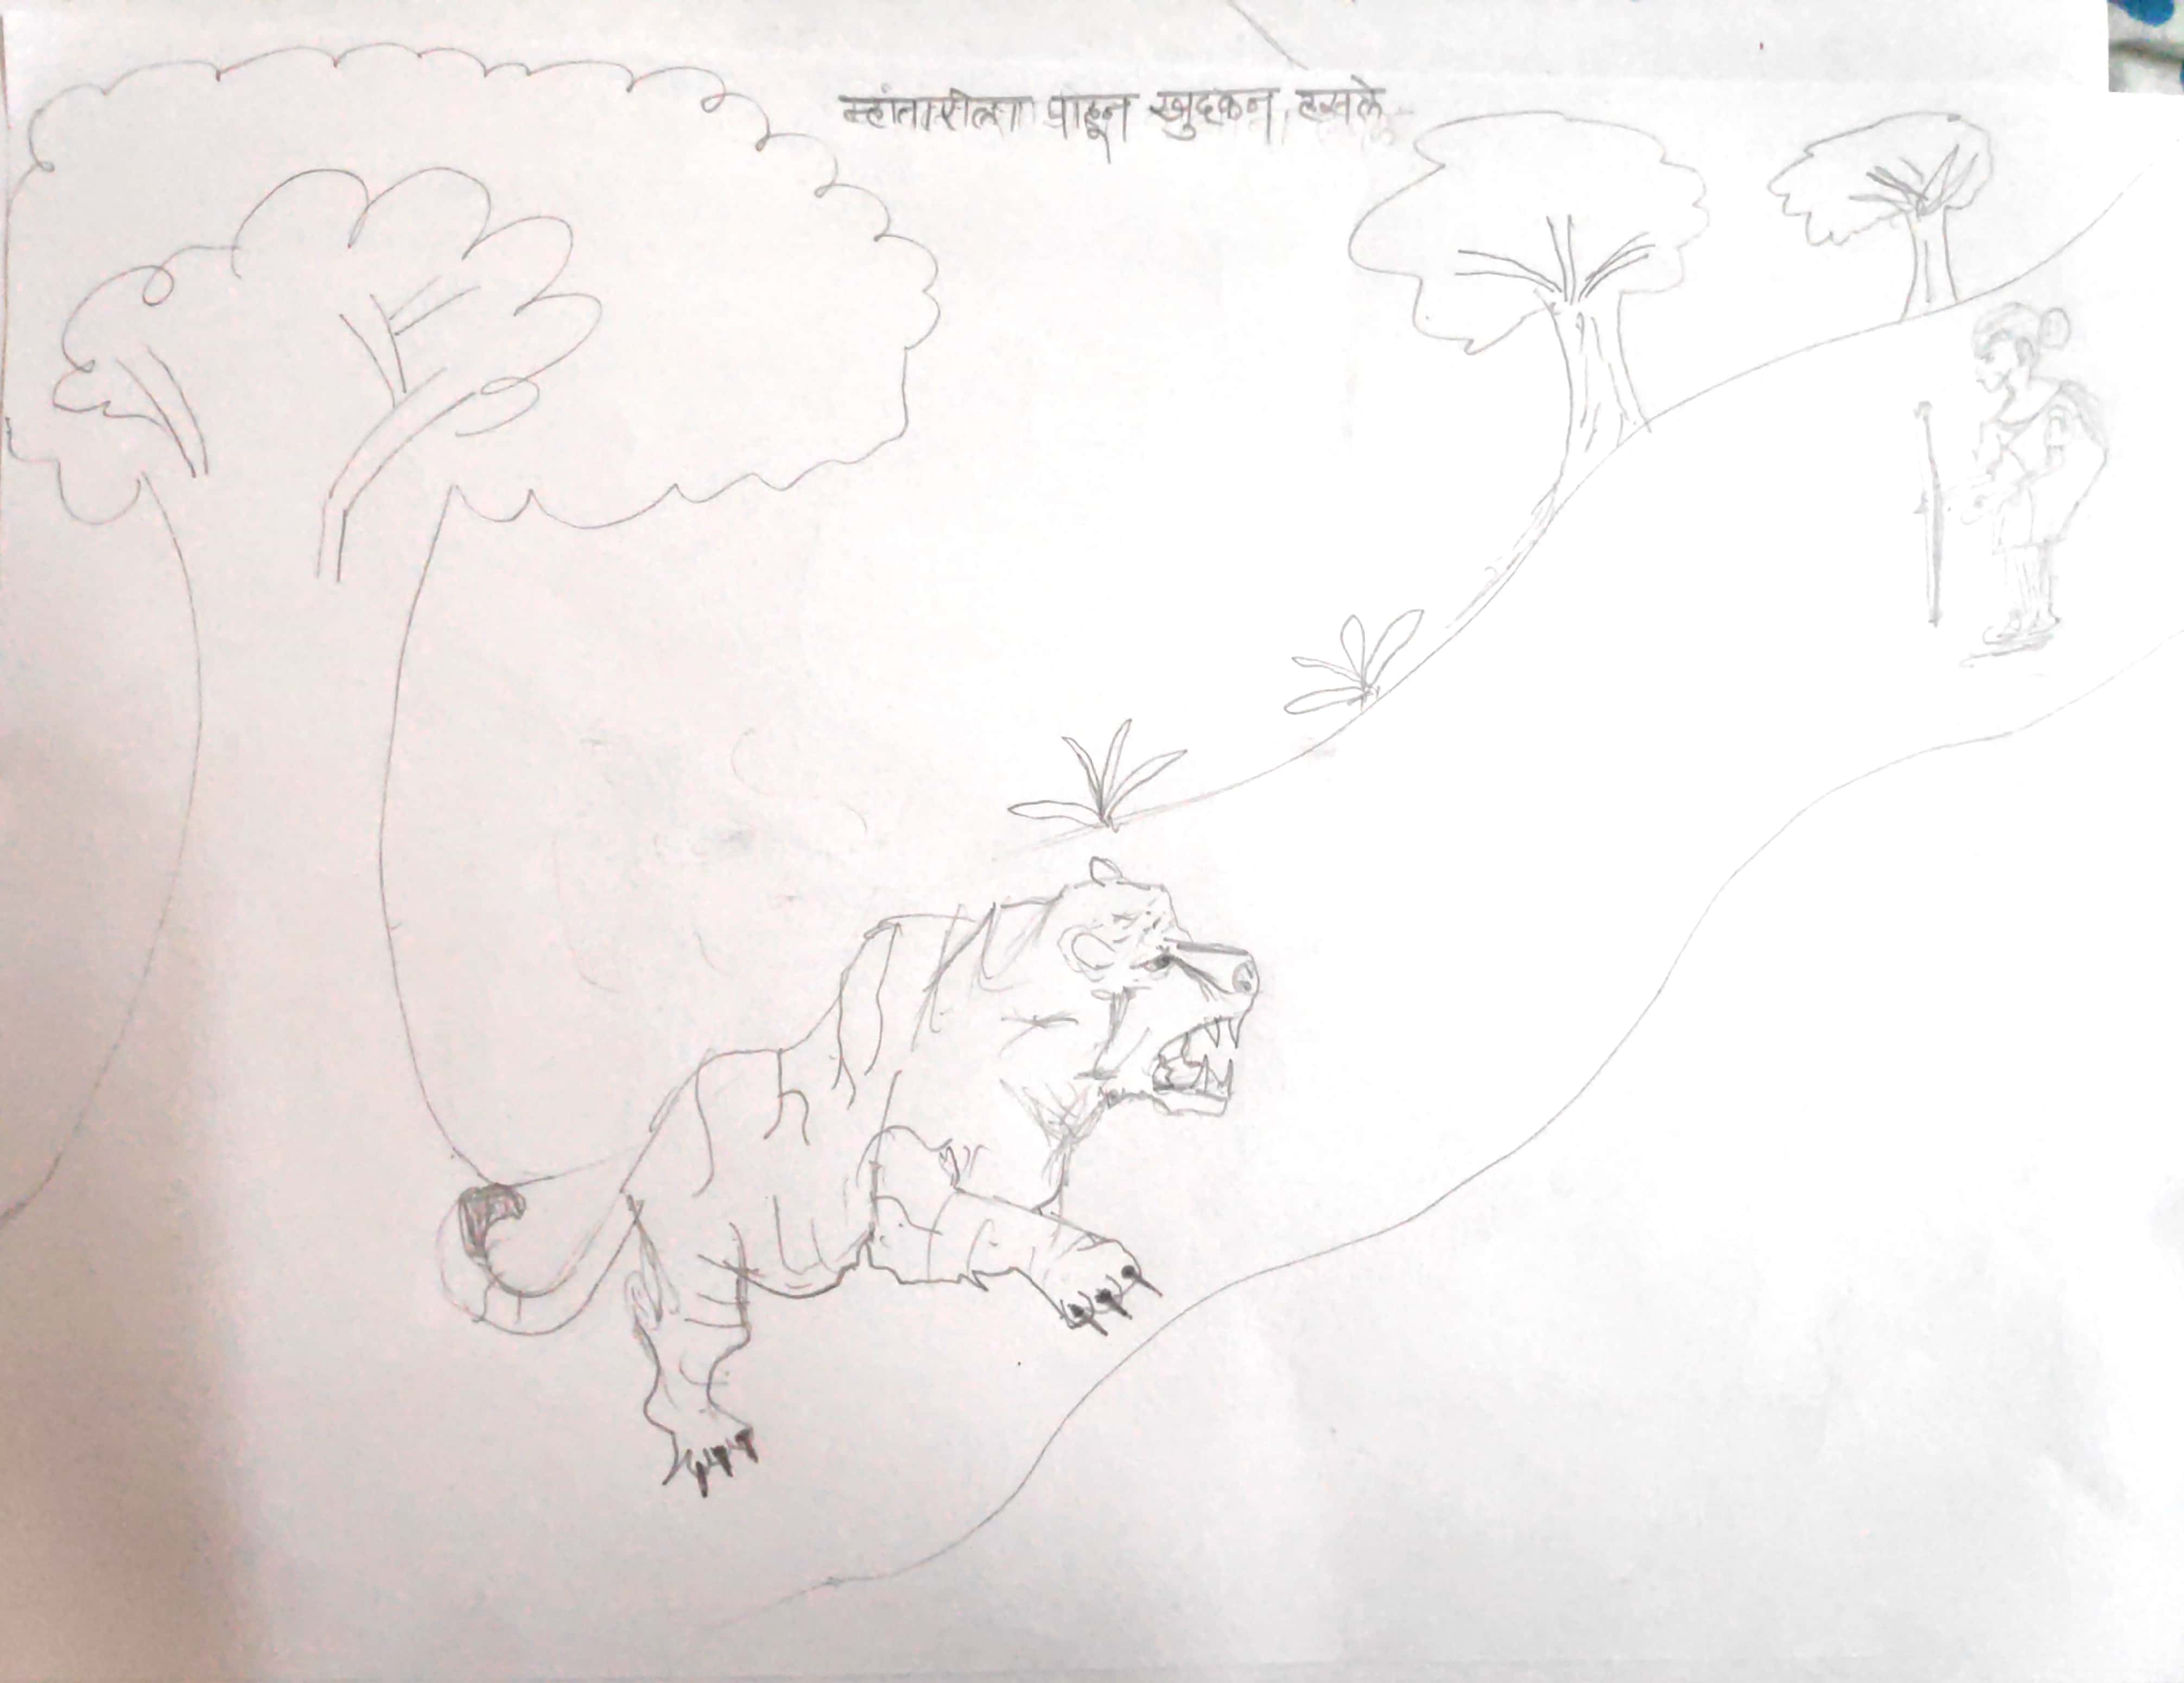 म्हांतारीला पाहून खुदकन हसले